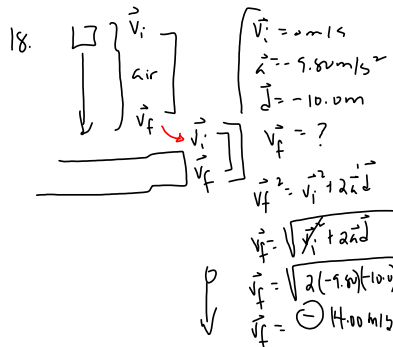 18.
v⃗ᵢ
air
v⃗_f
v⃗ᵢ
v⃗_f
v⃗ᵢ = 0m/s
a⃗ = -9.80m/s²
d⃗ = -10.0m
v⃗_f = ?
v⃗_f² = v⃗ᵢ² + 2a⃗d⃗
v⃗_f = √v⃗ᵢ² + 2a⃗d⃗
v⃗_f = √2(-9.80)(-10.0
v⃗_f = - 14.00 m/s